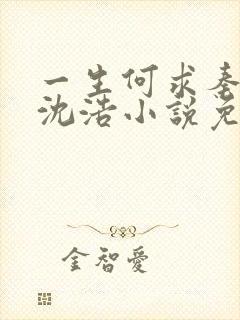 一生何求秦
沈浩小說免
金智愛